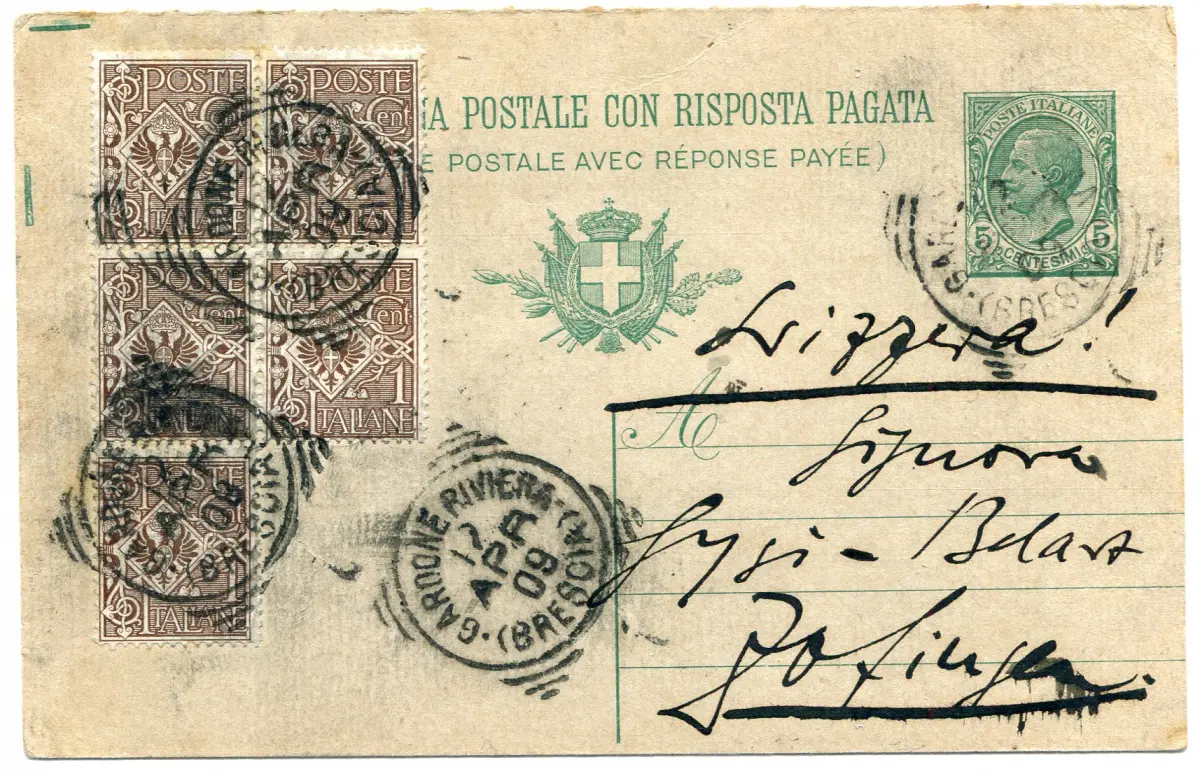 POSTE
Cent
1
ITALIANE
POSTE
Cent
ITALIANE
POSTE
Cent
1
ITALIANE
POSTE
Cent
1
ITALIANE
POSTE
ITALIANE
A POSTALE CON RISPOSTA PAGATA
E POSTALE AVEC RÉPONSE PAYÉE)
POSTE ITALIANE
5 CENTESIMI 5
GARDONE RIVIERA·(BRESCIA)·
12 APR 09
Svizzera!
A
Signora
Gysi - Belart
Zofingen.